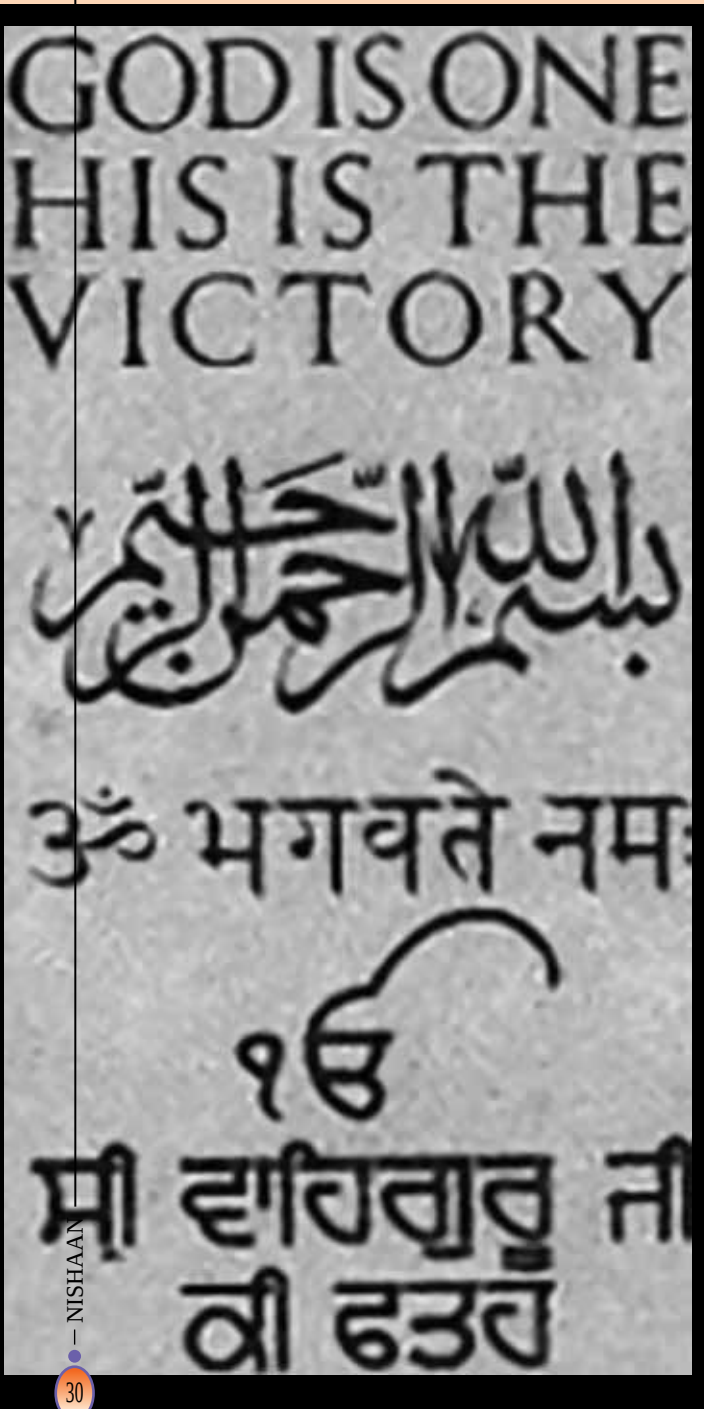 GOD IS ONE
HIS IS THE
VICTORY
بسم الله الرحمن الرحيم
ॐ भगवते नमः
ੴ
ਸ੍ਰੀ ਵਾਹਿਗੁਰੂ ਜੀ
ਕੀ ਫਤਹ
NISHAAN
30